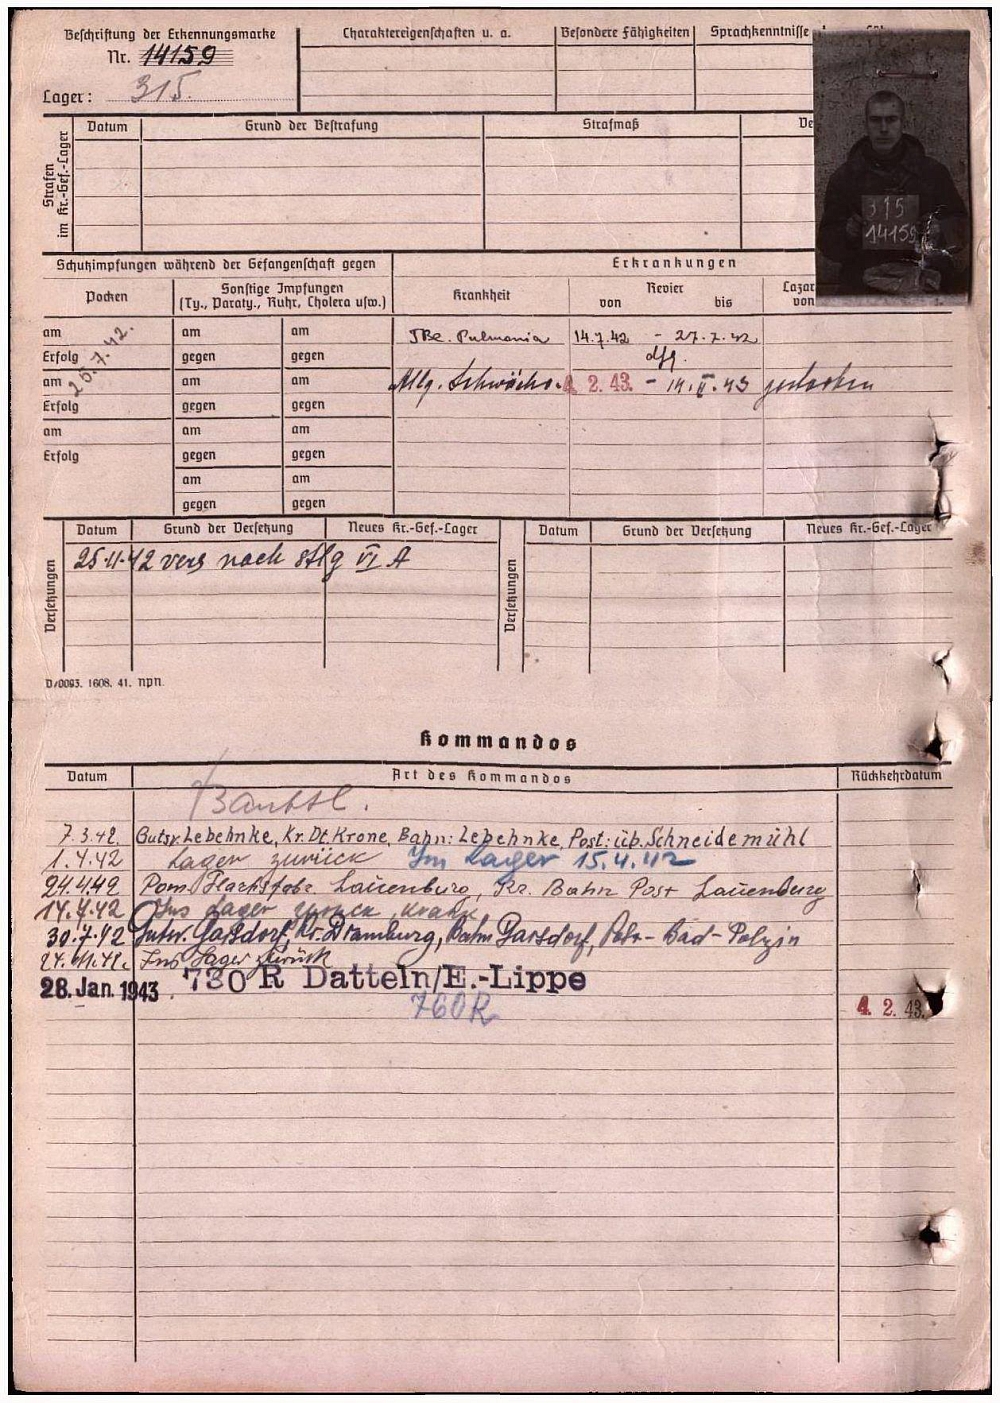 Beschriftung der Erkennungsmarke
Nr. 14159
Lager: 315.
Charaktereigenschaften u. a.
Besondere Fähigkeiten
Sprachkenntnisse
315
14159
Strafen im Kr.-Gef.-Lager
Datum Grund der Bestrafung Strafmaß
Schutzimpfungen während der Gefangenschaft gegen
Erkrankungen
Pocken
Sonstige Impfungen
(Ty., Paraty., Ruhr, Cholera usw.)
Krankheit
Revier
von bis
Lazar
von
am am am
Erfolg gegen gegen
25.7.42.
am am am
Erfolg gegen gegen
am am am
Erfolg gegen gegen
am am
gegen gegen
Tbc. Pulmonia 14.7.42 - 27.7.42
dfg.
Allg. Schwäche. 4. 2. 43. - 14.II.43 gestorben
Versetzungen
Datum Grund der Versetzung Neues Kr.-Gef.-Lager
25.11.42 vers nach Stlg VI A
Versetzungen
Datum Grund der Versetzung Neues Kr.-Gef.-Lager
D/0093. 1608. 41. npn.
Kommandos
Datum Art des Kommandos Rückkehrdatum
7.3.42. Gutsv. Lebehnke, Kr. Dt. Krone, Bahn: Lebehnke, Post: üb. Schneidemühl
1.4.42 Lager zurück Im Lager 15.4.42
24.4.42 Pom. Flachsfabr. Lauenburg, Kr. Bahn Post Lauenburg
14.7.42 Ins Lager zurück, krank
30.7.42 Gutsv. Garsdorf, Kr. Dramburg, Bahn Garsdorf, Post-Bad-Polzin
24.11.42. Ins Lager zurück
28. Jan. 1943. 730 R Datteln/E.-Lippe
760R 4. 2. 43.